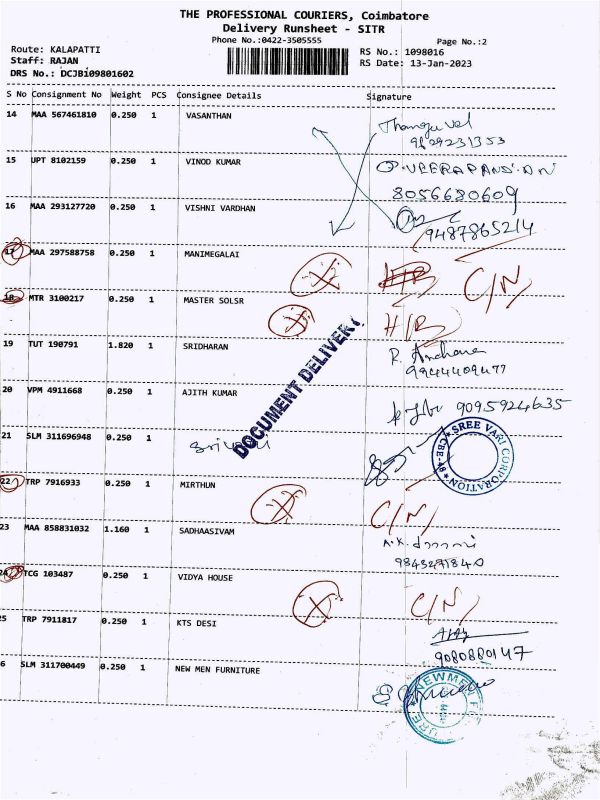 THE PROFESSIONAL COURIERS, Coimbatore
Delivery Runsheet - SITR
Phone No.:0422-3505555
Page No.:2
Route: KALAPATTI
RS No.: 1098016
Staff: RAJAN
RS Date: 13-Jan-2023
DRS No.: DCJBi09801602
S No Consignment No Weight PCS Consignee Details Signature
14 MAA 567461810 0.250 1 VASANTHAN
15 UPT 8102159 0.250 1 VINOD KUMAR
8056680609
16 MAA 293127720 0.250 1 VISHNI VARDHAN
9487865214
17 MAA 297588758 0.250 1 MANIMEGALAI C/N
18 MTR 3100217 0.250 1 MASTER SOLSR H/B
19 TUT 190791 1.820 1 SRIDHARAN
9944409477
20 VPM 4911668 0.250 1 AJITH KUMAR 9095924635
DOCUMENT DELIVERY
21 SLM 311696948 0.250 1
SREE VARI CORPORATION
22 TRP 7916933 0.250 1 MIRTHUN C/N
23 MAA 858831032 1.160 1 SADHAASIVAM
24 TCG 103487 0.250 1 VIDYA HOUSE C/N
25 TRP 7911817 0.250 1 KTS DESI
9080880147
6 SLM 311700449 0.250 1 NEW MEN FURNITURE